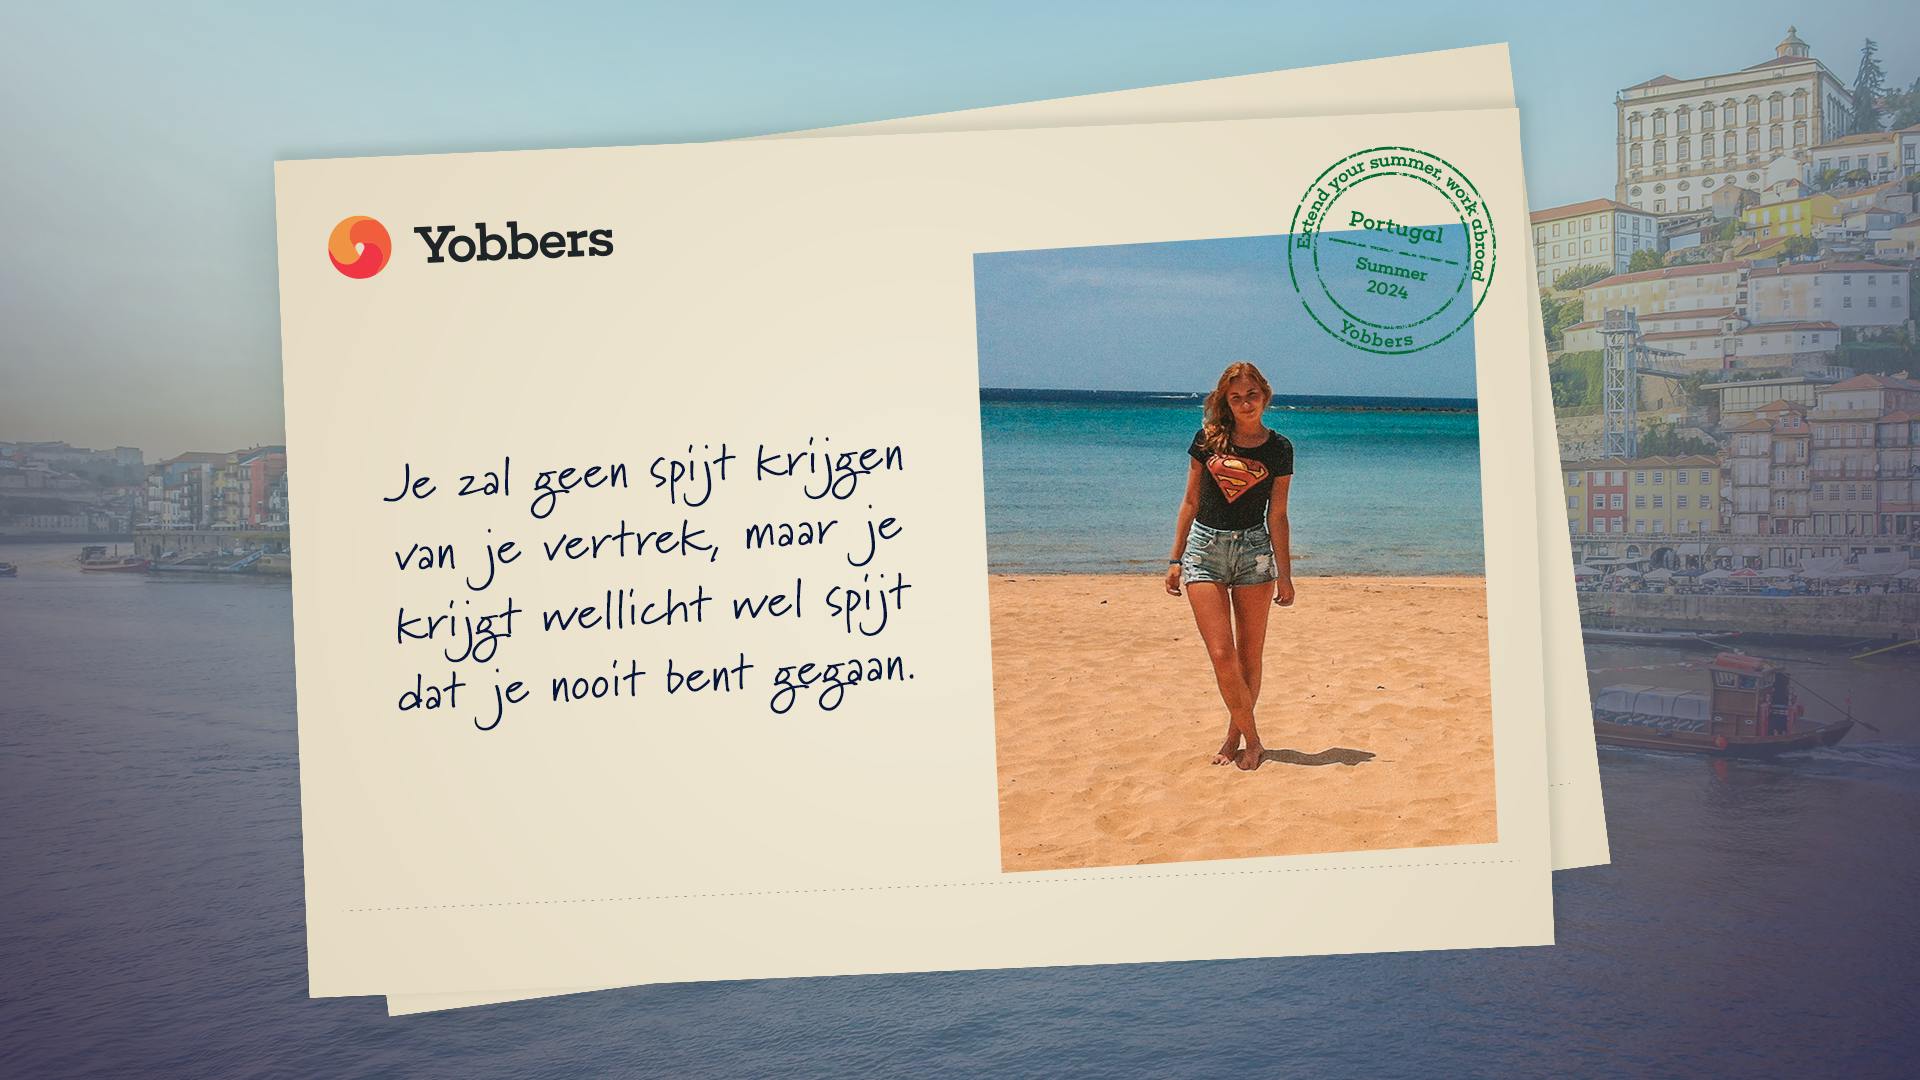 Yobbers
Je zal geen spijt krijgen
van je vertrek, maar je
krijgt wellicht wel spijt
dat je nooit bent gegaan.
Extend your summer, work abroad
Portugal
Summer
2024
Yobbers